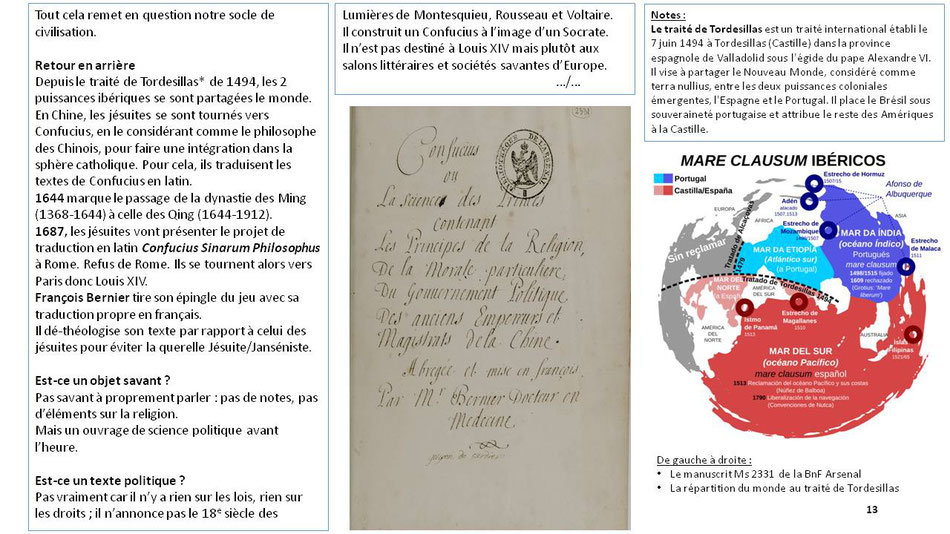 Tout cela remet en question notre socle de
civilisation.
Retour en arrière
Depuis le traité de Tordesillas* de 1494, les 2
puissances ibériques se sont partagées le monde.
En Chine, les jésuites se sont tournés vers
Confucius, en le considérant comme le philosophe
des Chinois, pour faire une intégration dans la
sphère catholique. Pour cela, ils traduisent les
textes de Confucius en latin.
1644 marque le passage de la dynastie des Ming
(1368-1644) à celle des Qing (1644-1912).
1687, les jésuites vont présenter le projet de
traduction en latin Confucius Sinarum Philosophus
à Rome. Refus de Rome. Ils se tournent alors vers
Paris donc Louis XIV.
François Bernier tire son épingle du jeu avec sa
traduction propre en français.
Il dé-théologise son texte par rapport à celui des
jésuites pour éviter la querelle Jésuite/Janséniste.
Est-ce un objet savant ?
Pas savant à proprement parler : pas de notes, pas
d'éléments sur la religion.
Mais un ouvrage de science politique avant
l'heure.
Est-ce un texte politique ?
Pas vraiment car il n'y a rien sur les lois, rien sur
les droits ; il n'annonce pas le 18e siècle des
Lumières de Montesquieu, Rousseau et Voltaire.
Il construit un Confucius à l'image d'un Socrate.
Il n'est pas destiné à Louis XIV mais plutôt aux
salons littéraires et sociétés savantes d'Europe.
.../...
2331
Confucius
ou
La Science des Princes
contenant
Les Principes de la Religion,
De la Morale particuliere,
Du Gouvernement Politique
Des anciens Empereurs et
Magistrats de la Chine.
Abregée et mise en françois
Par Mr Bernier Docteur en
Medecine.
Notes :
Le traité de Tordesillas est un traité international établi le
7 juin 1494 à Tordesillas (Castille) dans la province
espagnole de Valladolid sous l'égide du pape Alexandre VI.
Il vise à partager le Nouveau Monde, considéré comme
terra nullius, entre les deux puissances coloniales
émergentes, l'Espagne et le Portugal. Il place le Brésil sous
souveraineté portugaise et attribue le reste des Amériques
à la Castille.
MARE CLAUSUM IBÉRICOS
Portugal
Castilla/España
Estrecho de Hormuz
1507/15
Adén
atacado
1507,1513
Afonso de
Albuquerque
EUROPA
ÁFRICA
ASIA
Estrecho de
Mozambique
Estrecho
de Malaca
1511
Sin reclamar
Tratado de Alcaçovas
1479
MAR DA ETIOPIA
(Atlántico sur)
(a Portugal)
MAR DA ÍNDIA
(océano Índico)
Portugués
mare clausum
1498/1515 fijado
1609 rechazado
(Grotius: 'Mare
liberum')
Tratado de Tordesillas 1494
MAR DEL
NORTE
(a España)
AMÉRICA
DEL SUR
AMÉRICA
DEL
NORTE
Istmo
de Panamá
1513
Estrecho de
Magallanes
1520
AUSTRALIA
Islas
Filipinas
MAR DEL SUR
(océano Pacífico)
mare clausum español
1513 Reclamación del océano Pacífico y sus costas
(Núñez de Balboa)
1790 Liberalización de la navegación
(Convenciones de Nutca)
De gauche à droite :
• Le manuscrit Ms 2331 de la BnF Arsenal
• La répartition du monde au traité de Tordesillas
13